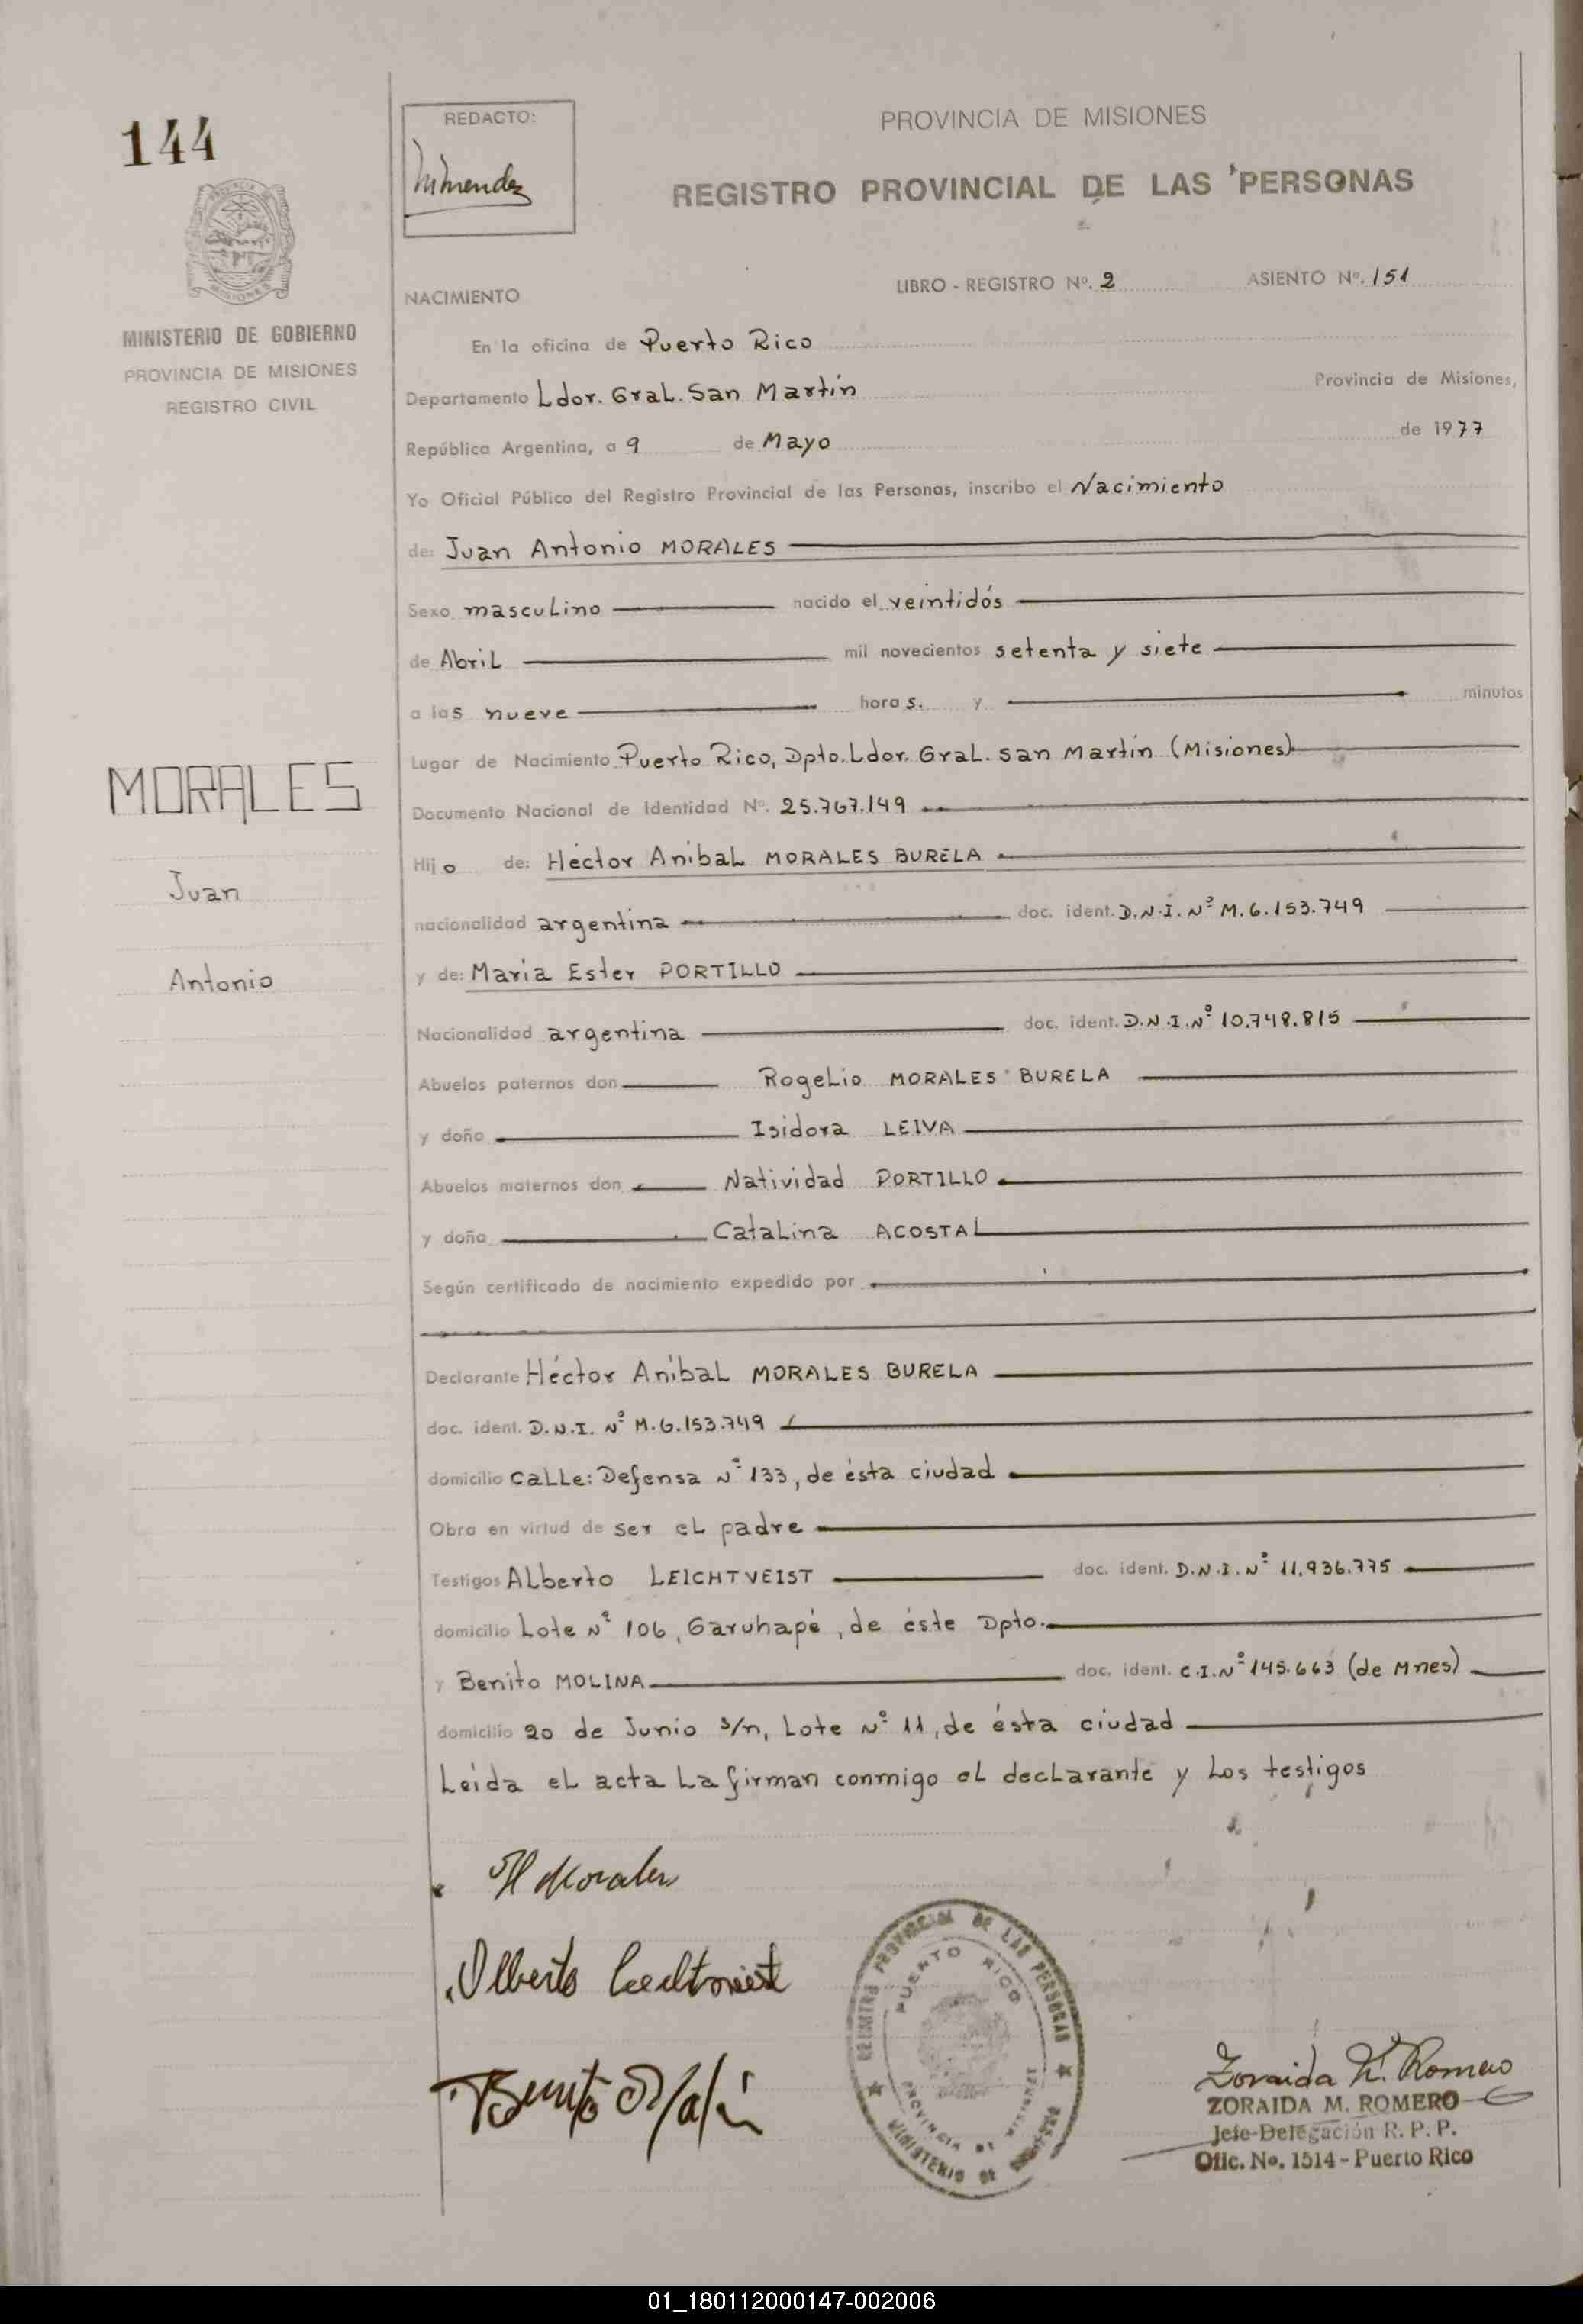 144
REDACTO:
PROVINCIA DE MISIONES
REGISTRO PROVINCIAL DE LAS PERSONAS
LIBRO - REGISTRO Nº. 2 ASIENTO Nº. 151
NACIMIENTO
MINISTERIO DE GOBIERNO
PROVINCIA DE MISIONES
REGISTRO CIVIL
En la oficina de Puerto Rico
Departamento Ldor. Gral. San Martín Provincia de Misiones,
República Argentina, a 9 de Mayo de 1977
Yo Oficial Público del Registro Provincial de las Personas, inscribo el Nacimiento
de: Juan Antonio MORALES
Sexo masculino nacido el veintidós
de Abril mil novecientos setenta y siete
a las nueve horas. y minutos
Lugar de Nacimiento Puerto Rico, Dpto. Ldor. Gral. San Martín (Misiones)
MORALES
Juan
Antonio
Documento Nacional de Identidad Nº. 25.767.149
Hijo de: Héctor Aníbal MORALES BURELA
nacionalidad argentina doc. ident. D.N.I. Nº M.6.153.749
y de: María Ester PORTILLO
Nacionalidad argentina doc. ident. D.N.I. Nº 10.748.815
Abuelos paternos don Rogelio MORALES BURELA
y doña Isidora LEIVA
Abuelos maternos don Natividad PORTILLO
y doña Catalina ACOSTA
Según certificado de nacimiento expedido por
Declarante Héctor Aníbal MORALES BURELA
doc. ident. D.N.I. Nº M.6.153.749
domicilio Calle: Defensa Nº 133, de ésta ciudad
Obra en virtud de ser el padre
Testigos Alberto LEICHTVEIST doc. ident. D.N.I. Nº 11.936.775
domicilio Lote Nº 106, Garuhapé, de éste Dpto.
y Benito MOLINA doc. ident. C.I. Nº 145.663 (de Mnes)
domicilio 20 de Junio s/n, Lote Nº 11, de ésta ciudad
Leída el acta la firman conmigo el declarante y los testigos
H Morales
Alberto
Benito
REGISTRO PROVINCIAL DE LAS PERSONAS
PUERTO RICO
PROVINCIA DE MISIONES
MINISTERIO DE
Zoraida M. Romero
ZORAIDA M. ROMERO
Jefe-Delegación R. P. P.
Ofic. No. 1514 - Puerto Rico
01_180112000147-002006